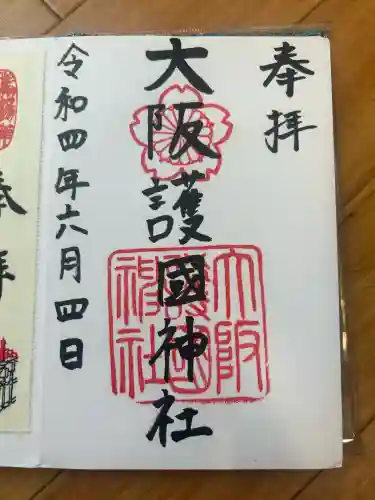 奉拝
大阪護國神社
大阪護國神社
令和四年六月四日
奉拝